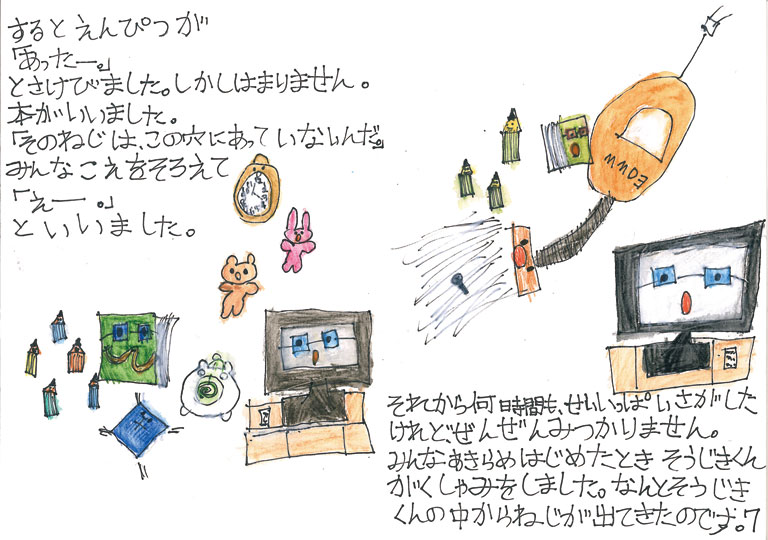 するとえんぴつが
「あったー。」
とさけびました。しかしはまりません。
本がいいました。
「そのねじは、この穴にあっていないんだ。」
みんなこえをそろえて
「えー。」
といいました。
それから何時間も、せいいっぱいさがした
けれど、ぜんぜんみつかりません。
みんなあきらめはじめたとき そうじきくん
がくしゃみをしました。なんとそうじき
くんの中からねじが出てきたのです。7